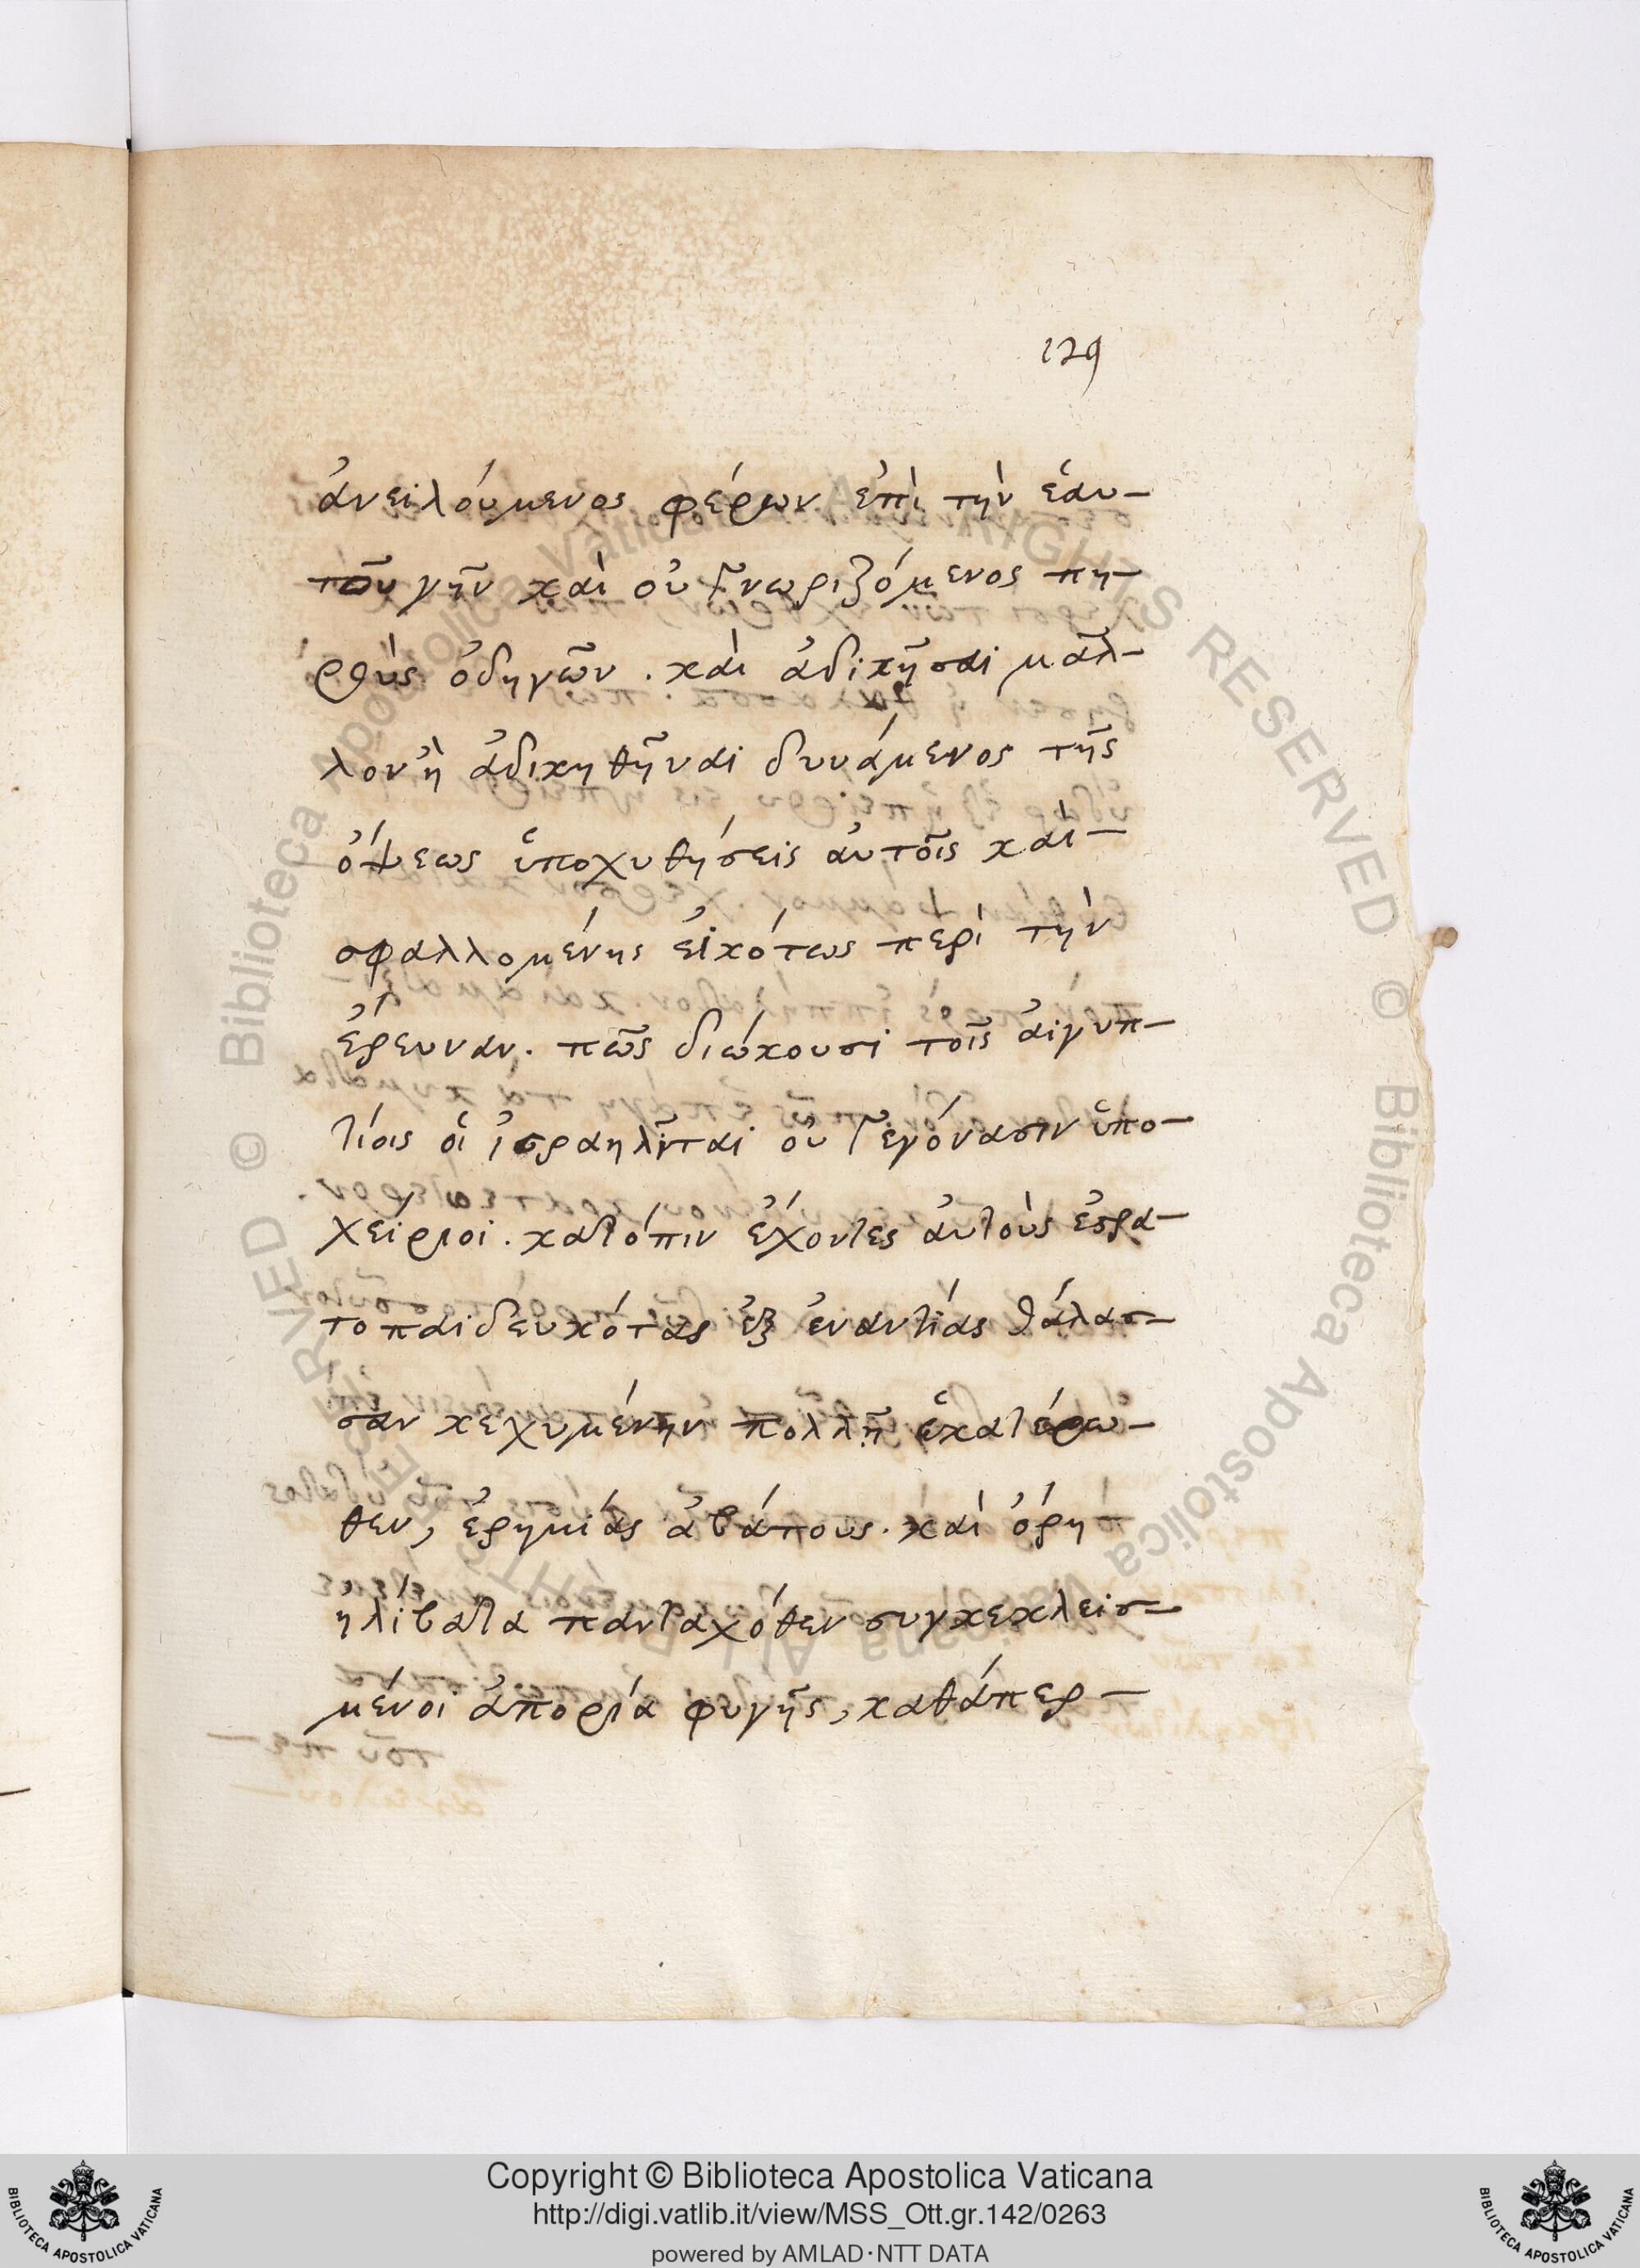 129
ἀνειλούμενος φέρων ἐπὶ τὴν ἑαυ-
τοῦ γῆν καὶ οὐ γνωριζόμενος πη-
ροὺς ὁδηγῶν . καὶ ἀδικῆσαι μᾶλ-
λον ἢ ἀδικηθῆναι δυνάμενος τῆς
ὄψεως ὑποχυθήσεις αὐτοῖς καὶ-
σφαλλομένης εἰκότως περὶ τὴν
ἔρευναν. πῶς διώκουσι τοῖς αἰγυπ-
τίοις οἱ ἰσραηλῖται οὐ γεγόνασιν ὑπο-
χείριοι . κατόπιν ἔχοντες αὐτοὺς ἐστρα-
τοπαιδευκότας ἐξ ἐναντίας θάλασ-
σαν κεχυμένην πολλῆ ἑκατέρω-
θεν, ἐρημίας ἀβάτους . καὶ ὄρη
ἠλίβατα πανταχόθεν συγκεκλεισ-
μένοι ἀπορία φυγῆς, καθάπερ-
Copyright © Biblioteca Apostolica Vaticana
http://digi.vatlib.it/view/MSS_Ott.gr.142/0263
powered by AMLAD·NTT DATA
BIBLIOTECA APOSTOLICA VATICANA
BIBLIOTECA APOSTOLICA VATICANA